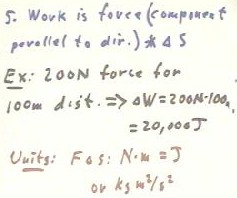 5. Work is force (component
parallel to dir.) * Δ S
Ex: 200N force for
100m dist. => ΔW = 200N·100m
= 20,000J
Units: F·s: N·m = J
or kg m²/s²